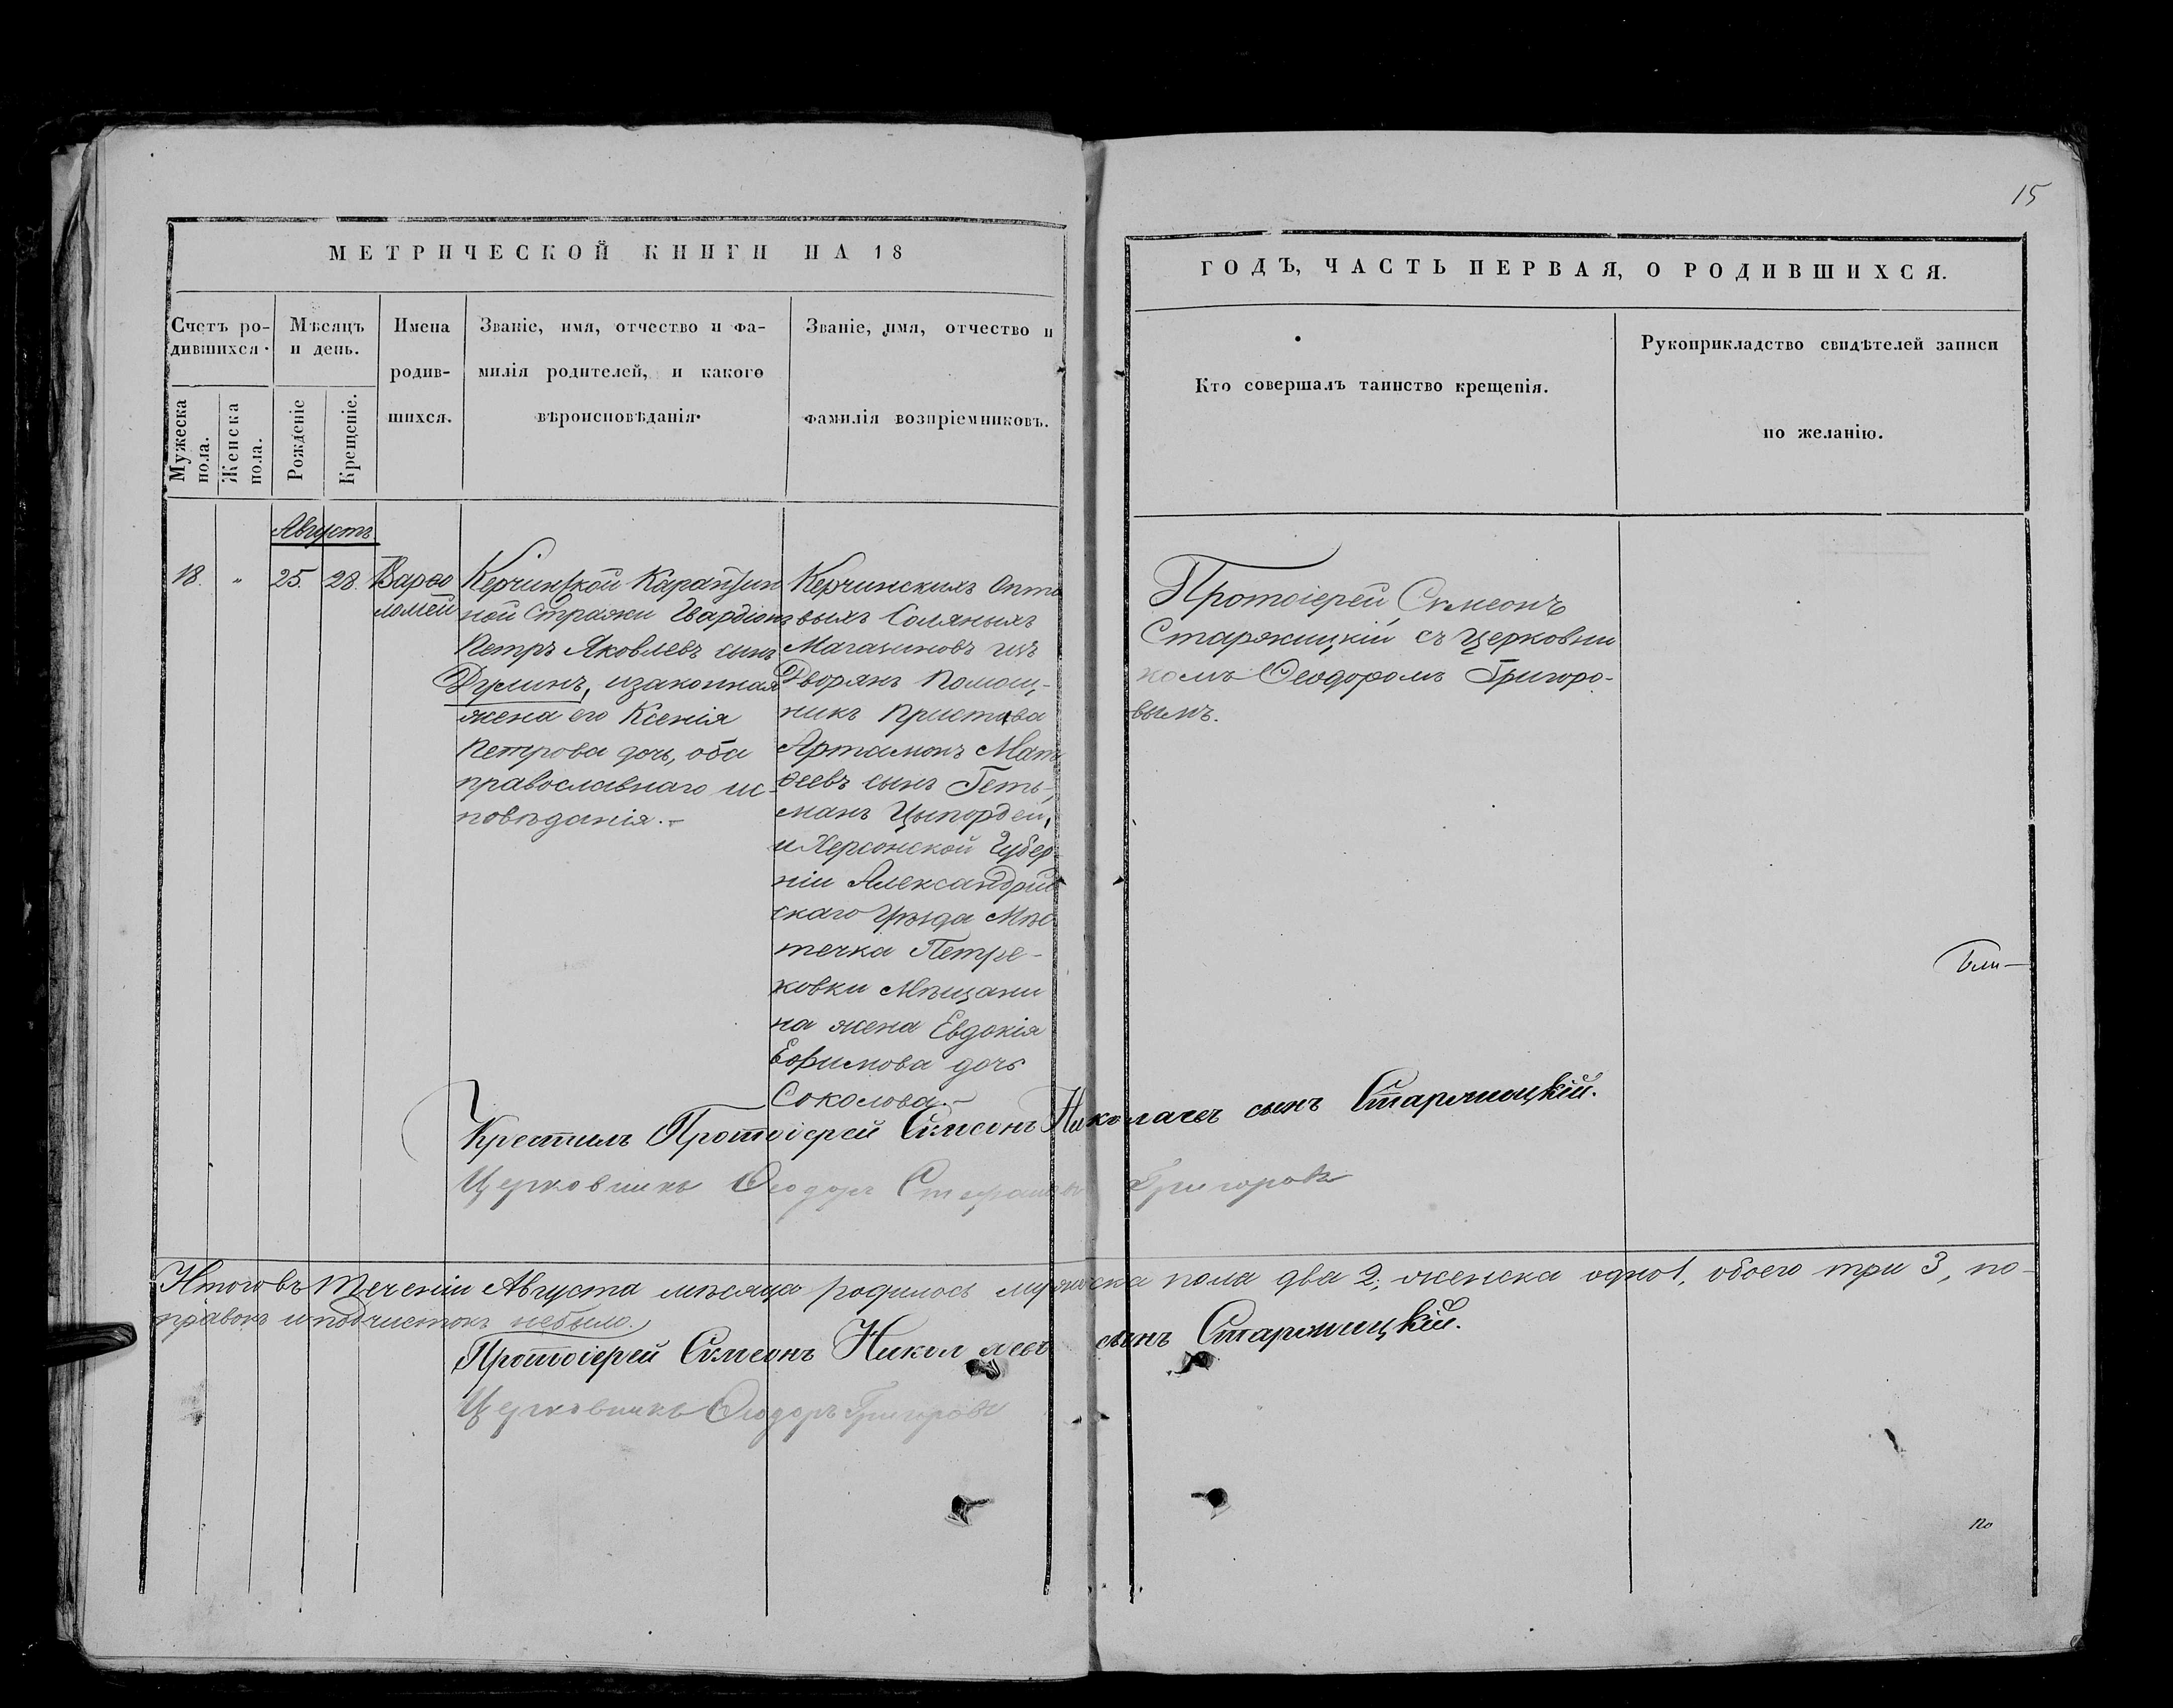 15
МЕТРИЧЕСКОЙ КНИГИ НА 18
ГОДЪ, ЧАСТЬ ПЕРВАЯ, О РОДИВШИХСЯ.
Счетъ ро-
дившихся.
Мужеска
пола.
Женска
пола.
Мѣсяцъ
и день.
Рожденіе
Крещеніе.
Имена
родив-
шихся.
Званіе, имя, отчество и фа-
милія родителей, и какого
вѣроисповѣданія.
Званіе, имя, отчество и
фамилія воспріемниковъ.
Кто совершалъ таинство крещенія.
Рукоприкладство свидѣтелей записи
по желанію.
Августъ
18. " 25. 28.
Варѳо
ломей
Керчинской Карантин
ной Стражи Гвардіонъ
Петръ Яковлевъ сынъ
Дулинъ, изаконная
жена его Ксенія
Петрова дочь, оба
православнаго ис-
повѣданія.-
Керчинскихъ Опто
выхъ Соляныхъ
Магазиновъ изъ
Дворянъ Помощ-
никъ Пристава
Артамонъ Мат
ѳеевъ сынъ Геть-
манъ
и Херсонской Губер-
ніи Александрій
скаго Уѣзда Мѣс
течка Петре-
ковки Мѣщани
на жена Евдокія
Ефимова дочь
Соколова.-
Протоіерей Симеонъ
Старжицкій съ Церковни
комъ Ѳеодоромъ Григоро-
вымъ.
Крестилъ Протоіерей Симеонъ Николаевъ сынъ Старжицкій.
Церковникъ Ѳеодоръ Стефановъ Григоровъ
Итого въ теченіи Августа мѣсяца родилось мужеска пола два 2, женска одно 1, обоего три 3, по-
правокъ и подчистокъ небыло.
Протоіерей Симеонъ Николаевъ сынъ Старжицкій.
Церковникъ Ѳеодоръ Григоровъ
по